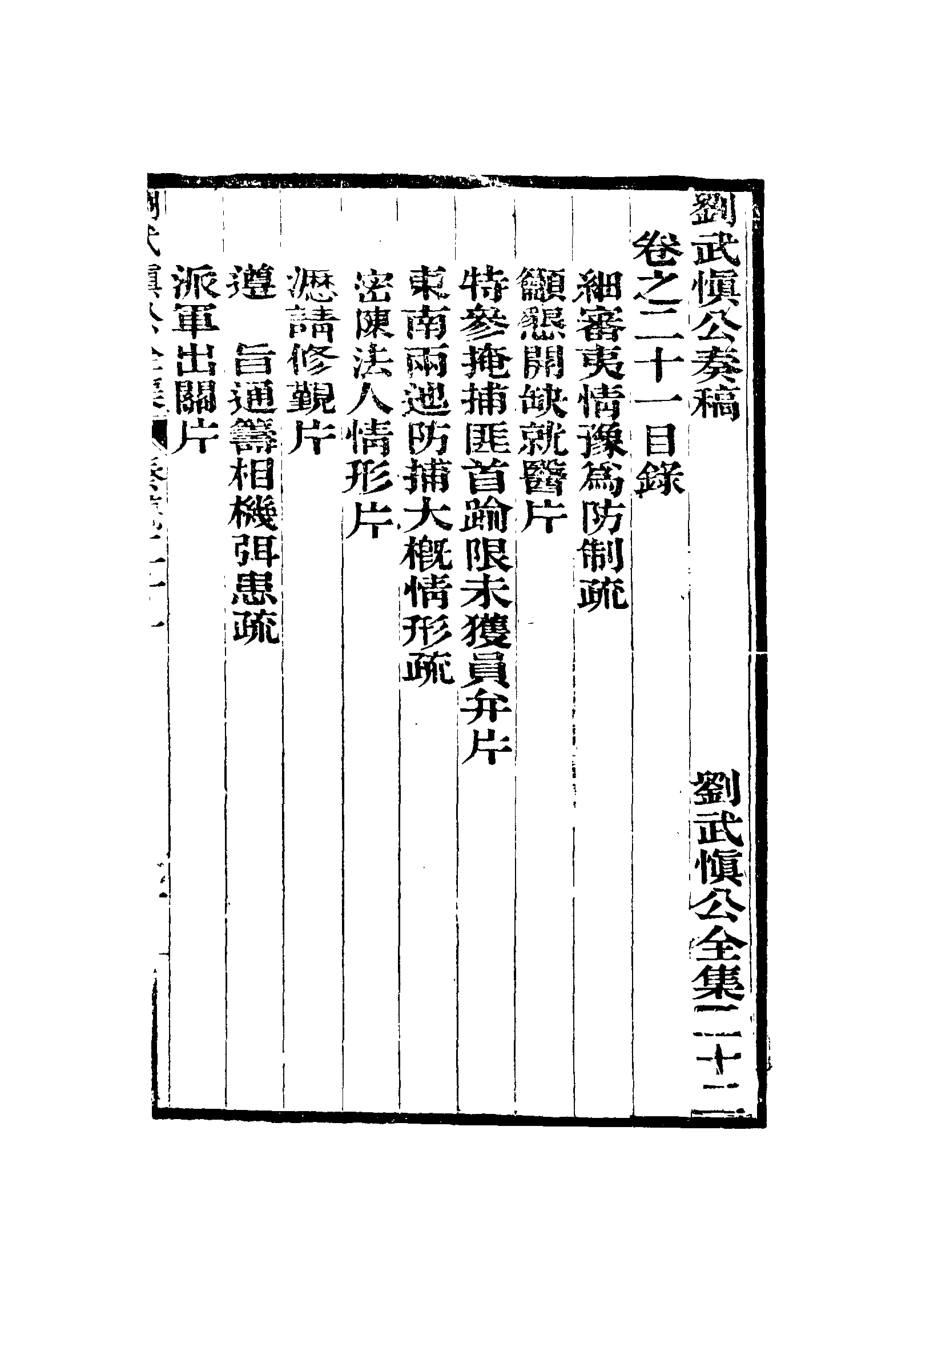 劉武慎公奏稿　劉武慎公全集二十二
卷之二十一目錄
細審夷情豫爲防制疏
籲懇開缺就醫片
特參掩捕匪首踰限未獲員弁片
東南兩迤防捕大槪情形疏
密陳法人情形片
瀝請修覲片
遵　旨通籌相機弭患疏
派軍出關片